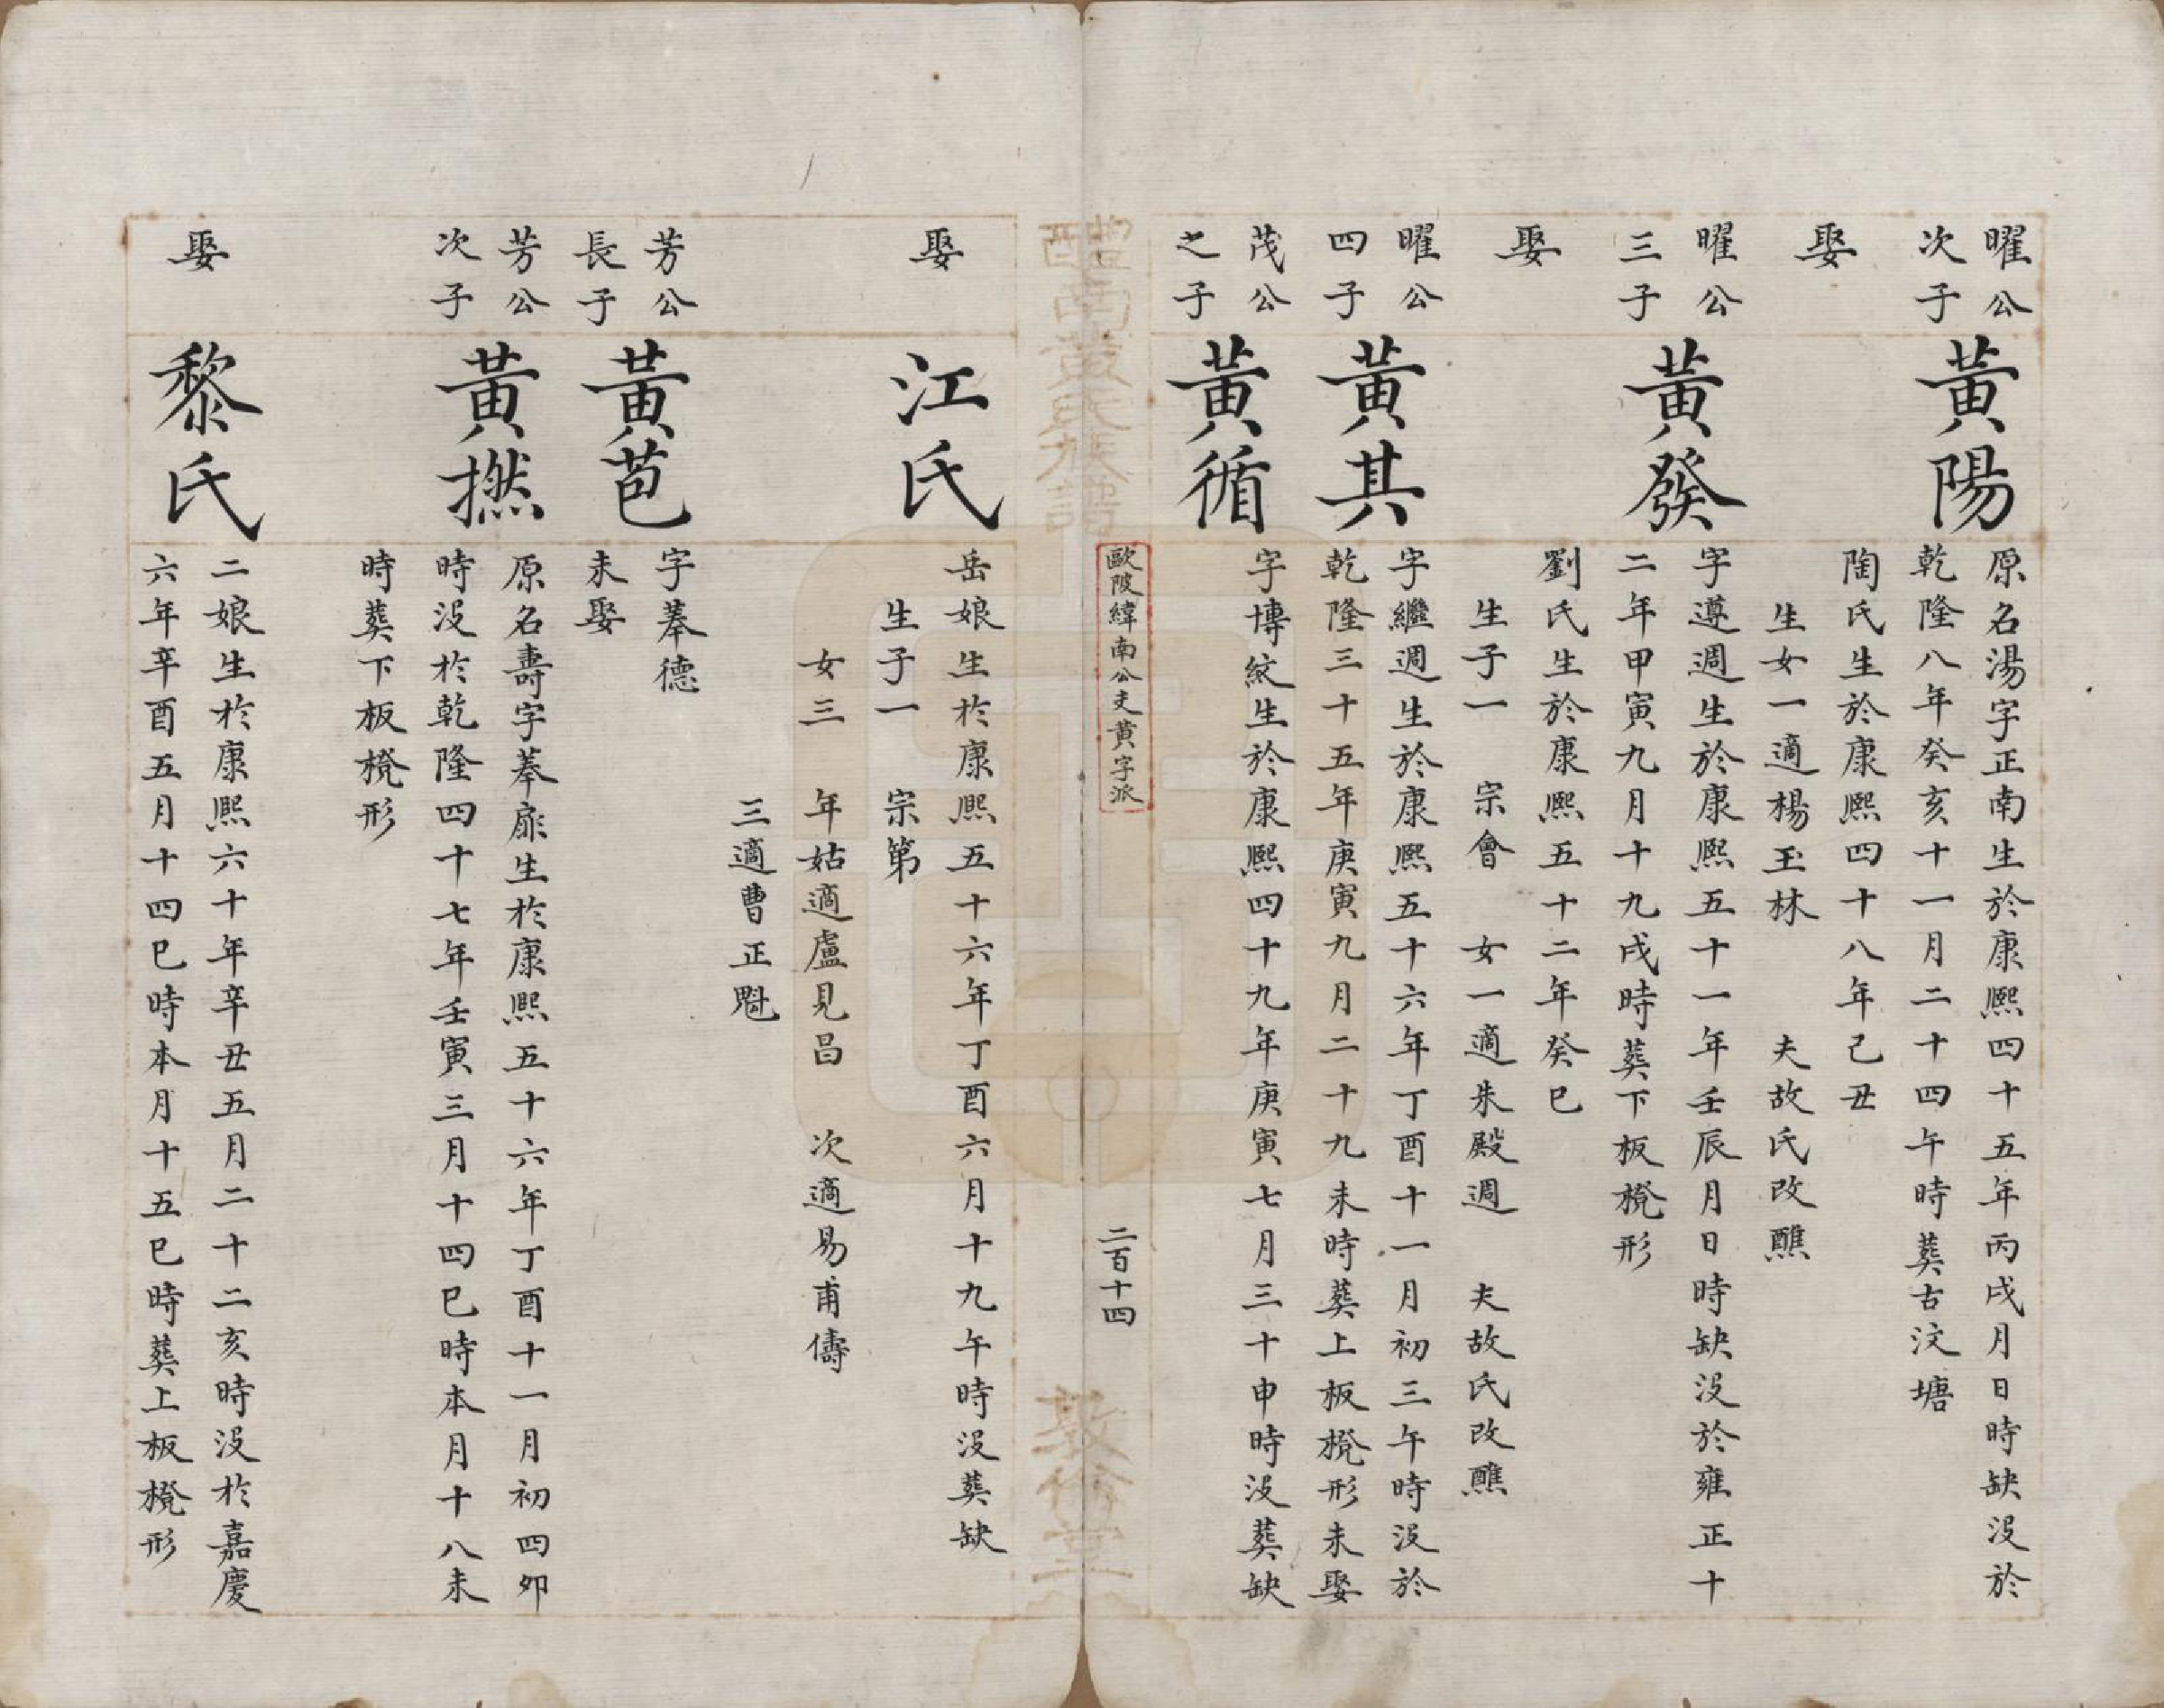 曜公
次子
黃陽
原名湯字正南生於康熙四十五年丙戌月日時缺沒於
乾隆八年癸亥十一月二十四午時葬古汶塘
娶
陶氏生於康熙四十八年己丑
生女一適楊玉林 夫故氏改醮
曜公
三子
黃發
字遵週生於康熙五十一年壬辰月日時缺沒於雍正十
二年甲寅九月十九戌時葬下板櫈形
娶
劉氏生於康熙五十二年癸巳
生子一 宗會 女一適朱殿週 夫故氏改醮
曜公
四子
黃其
字繼週生於康熙五十六年丁酉十一月初三午時沒於
乾隆三十五年庚寅九月二十九未時葬上板櫈形未娶
茂公
之子
黃循
字博紋生於康熙四十九年庚寅七月三十申時沒葬缺
醴南黃氏族譜
歐陂緯南公支黃字派
二百十四
敦倫堂
娶
江氏
岳娘生於康熙五十六年丁酉六月十九午時沒葬缺
生子一 宗第
女三 年姑適盧見昌 次適易甫儔
三適曹正魁
芳公
長子
黃苞
字菶德
未娶
芳公
次子
黃撚
原名壽字菶扉生於康熙五十六年丁酉十一月初四卯
時沒於乾隆四十七年壬寅三月十四巳時本月十八未
時葬下板櫈形
娶
黎氏
二娘生於康熙六十年辛丑五月二十二亥時沒於嘉慶
六年辛酉五月十四巳時本月十五巳時葬上板櫈形